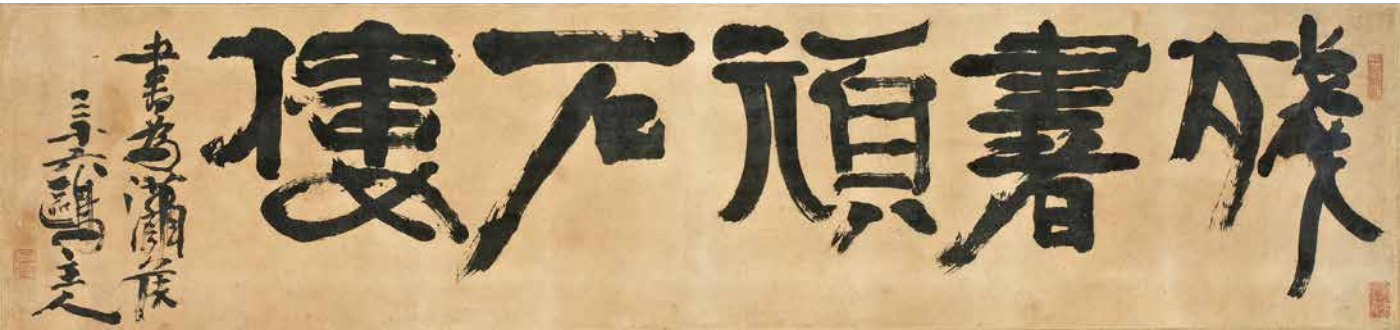 殘書頑石樓
書為瀟
三十六鷗主人